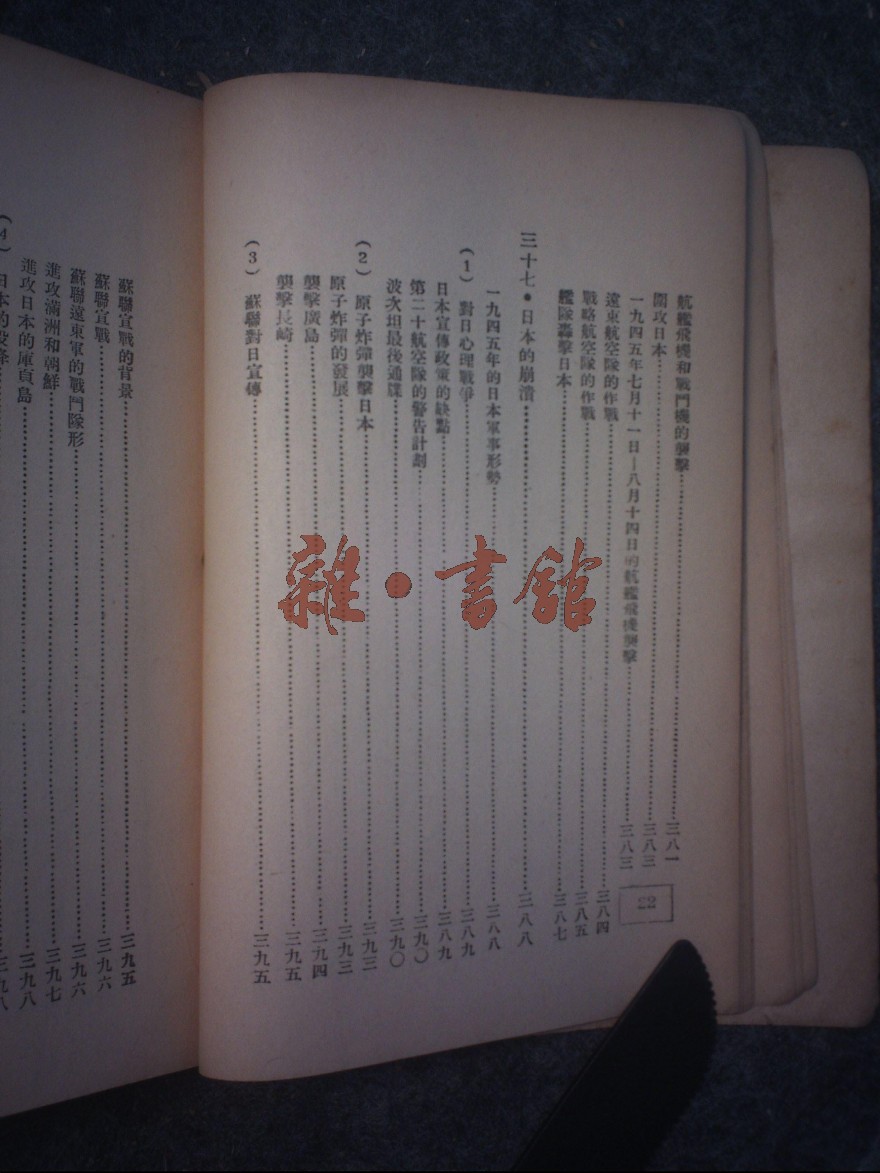 航艦飛機和戰鬥機的襲擊……三八一
圍攻日本……三八三
一九四五年七月十一日—八月十四日的航艦飛機襲擊……三八三
遠東航空隊的作戰……三八四
戰略航空隊的作戰……三八五
艦隊轟擊日本……三八七
三十七•日本的崩潰……三八八
一九四五年的日本軍事形勢……三八八
(1) 對日心理戰爭……三八九
日本宣傳政策的缺點……三八九
第二十航空隊的警告計劃……三九〇
波茨坦最後通牒……三九〇
(2) 原子炸彈襲擊日本……三九三
原子炸彈的發展……三九三
襲擊廣島……三九四
襲擊長崎……三九五
(3) 蘇聯對日宣傳……三九五
22
蘇聯宣戰的背景……三九五
蘇聯宣戰……三九六
蘇聯遠東軍的戰鬥隊形……三九六
進攻滿洲和朝鮮……三九七
進攻日本的庫頁島……三九八
(4) 日本的投降……三九八
雜•書館